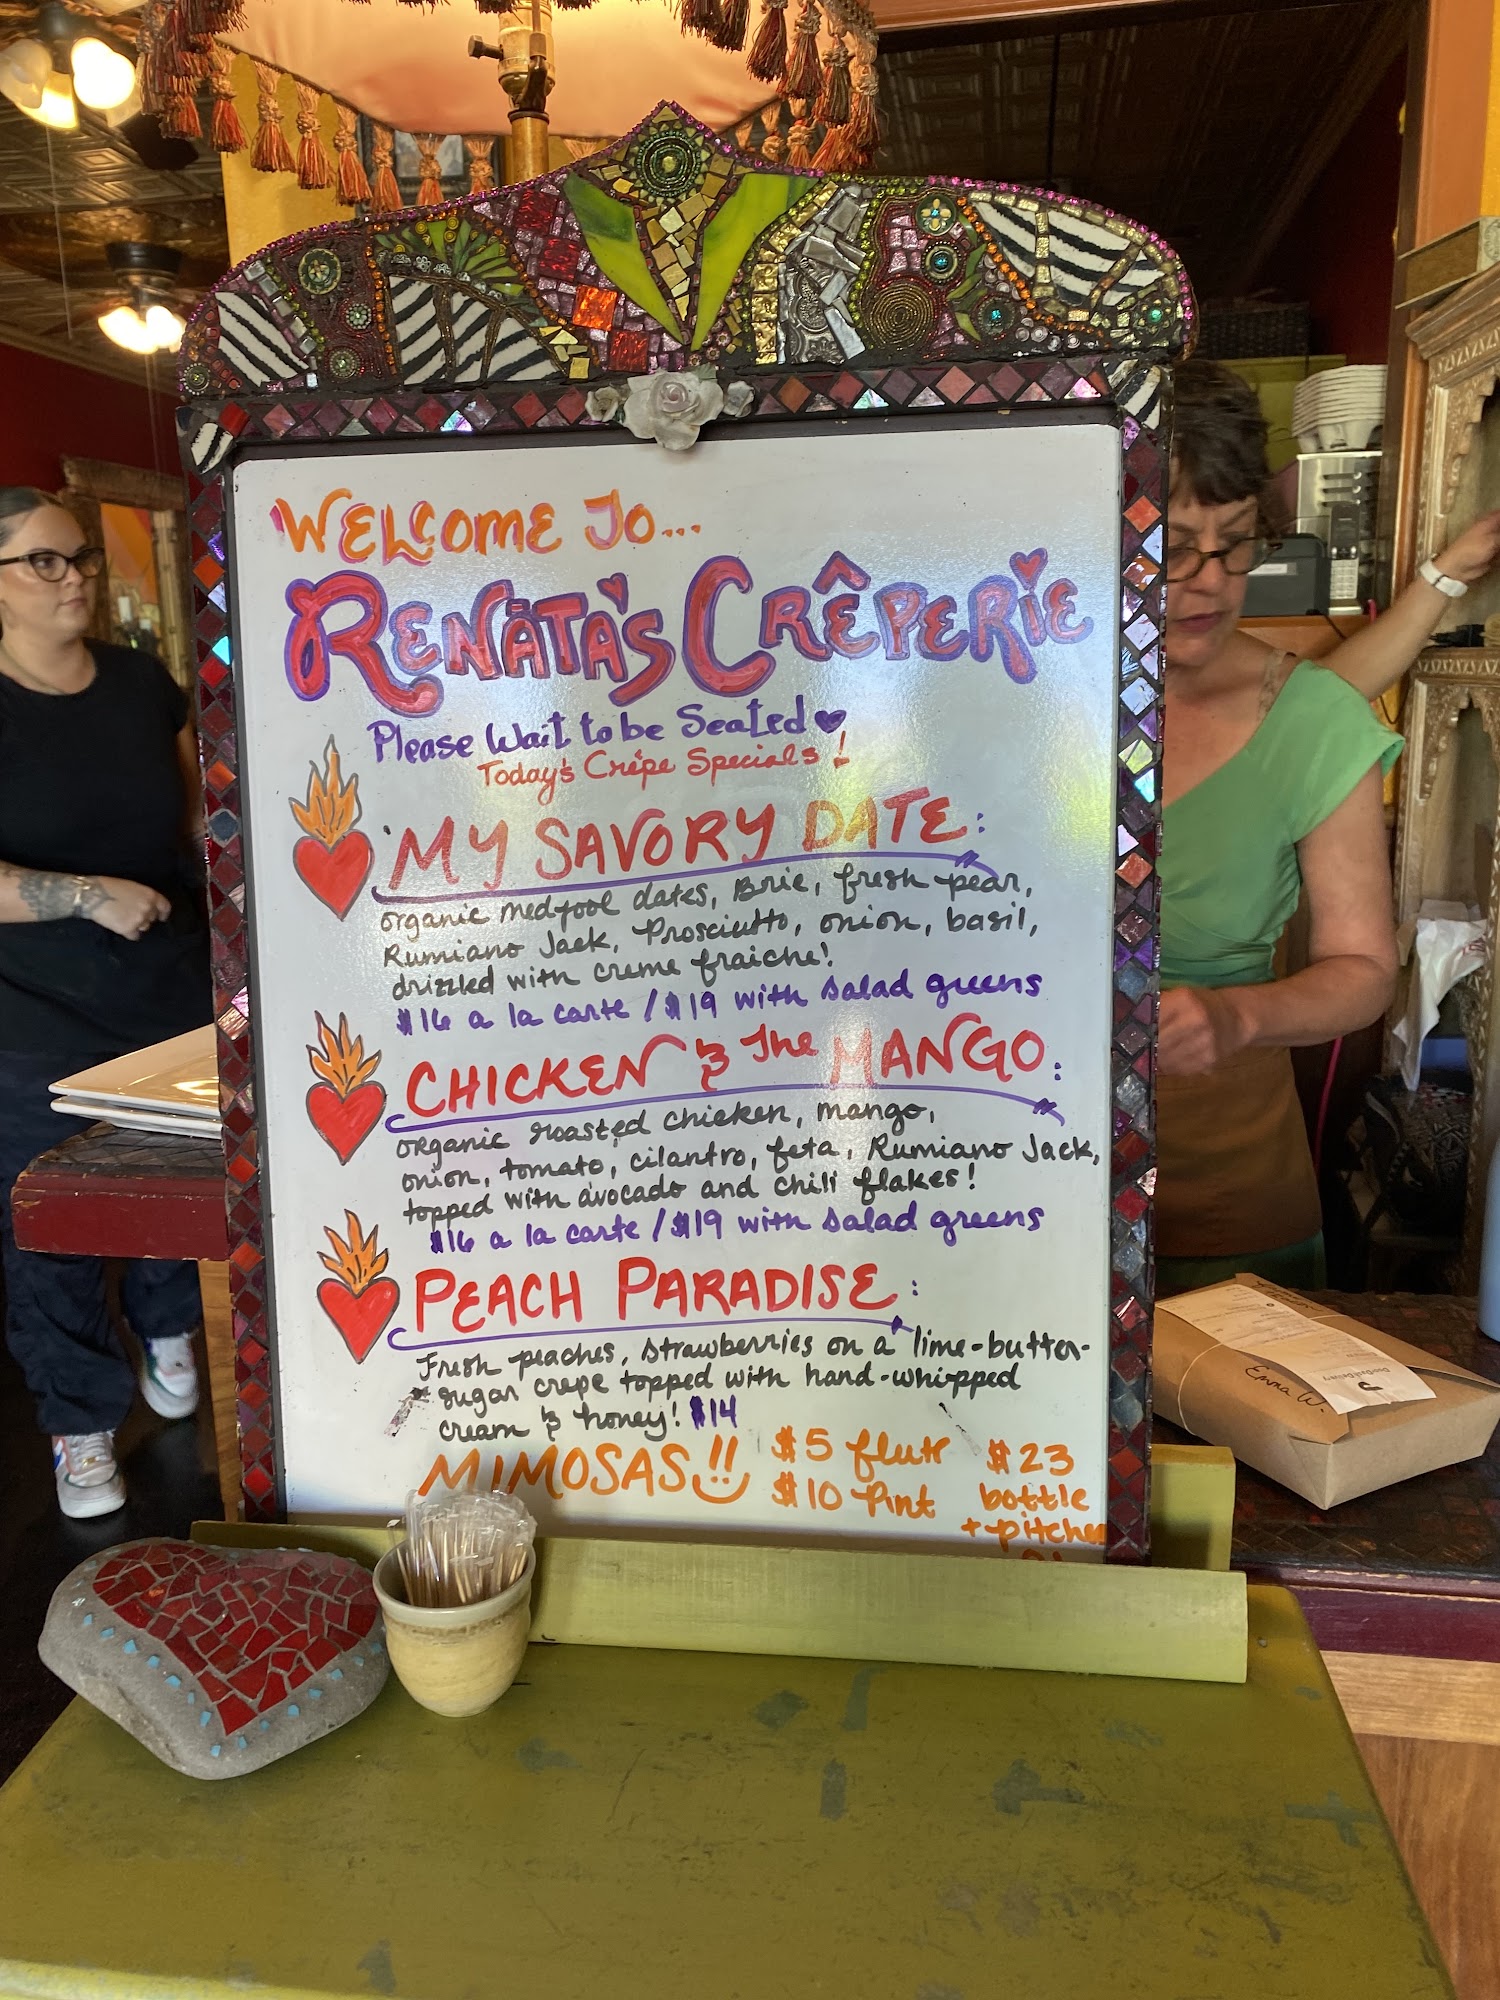 WELCOME TO...
RENATA'S CRÊPERIE
Please Wait to be Seated
Today's Crêpe Specials!
MY SAVORY DATE:
organic medjool dates, Brie, fresh pear,
Rumiano Jack, Prosciutto, onion, basil,
drizzled with creme fraiche!
$16 a la carte / $19 with salad greens
CHICKEN & The MANGO:
organic roasted chicken, mango,
onion, tomato, cilantro, feta, Rumiano Jack,
topped with avocado and chili flakes!
$16 a la carte / $19 with salad greens
PEACH PARADISE:
Fresh peaches, strawberries on a lime-butter-
sugar crepe topped with hand-whipped
cream & honey! $14
MIMOSAS!!
$5 flute
$10 Pint
$23
bottle
+ pitcher
Emma W.